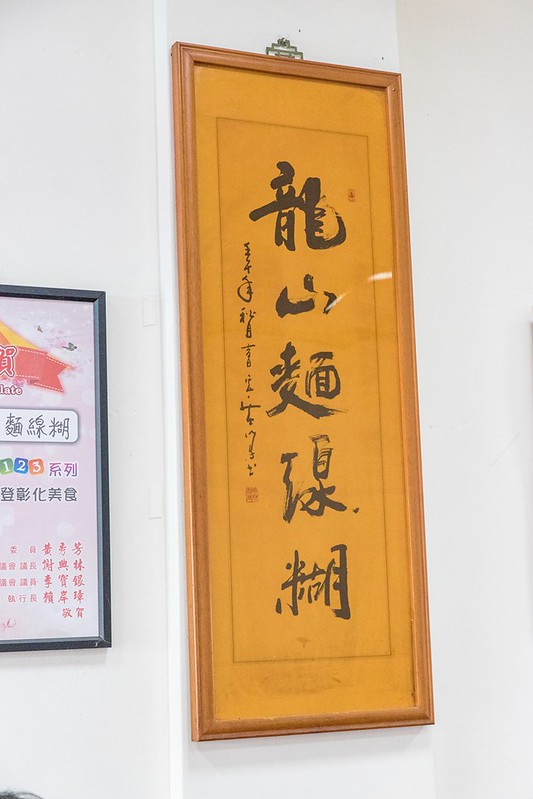 龍山麵線糊
賀
late
麵線糊
123系列
登彰化美食
委員 黃秀芳
議會 議長 謝典林
議會 議員 李寶銀
執行長 賴岸璋
敬賀